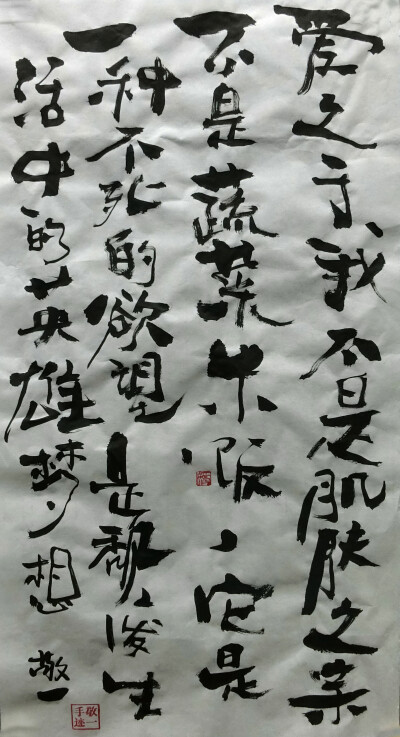 爱之于、我不是肌肤之亲
不是蔬菜米饭、它是
一种不死的欲望是生
活中的英雄梦想 敬一
敬一手迹